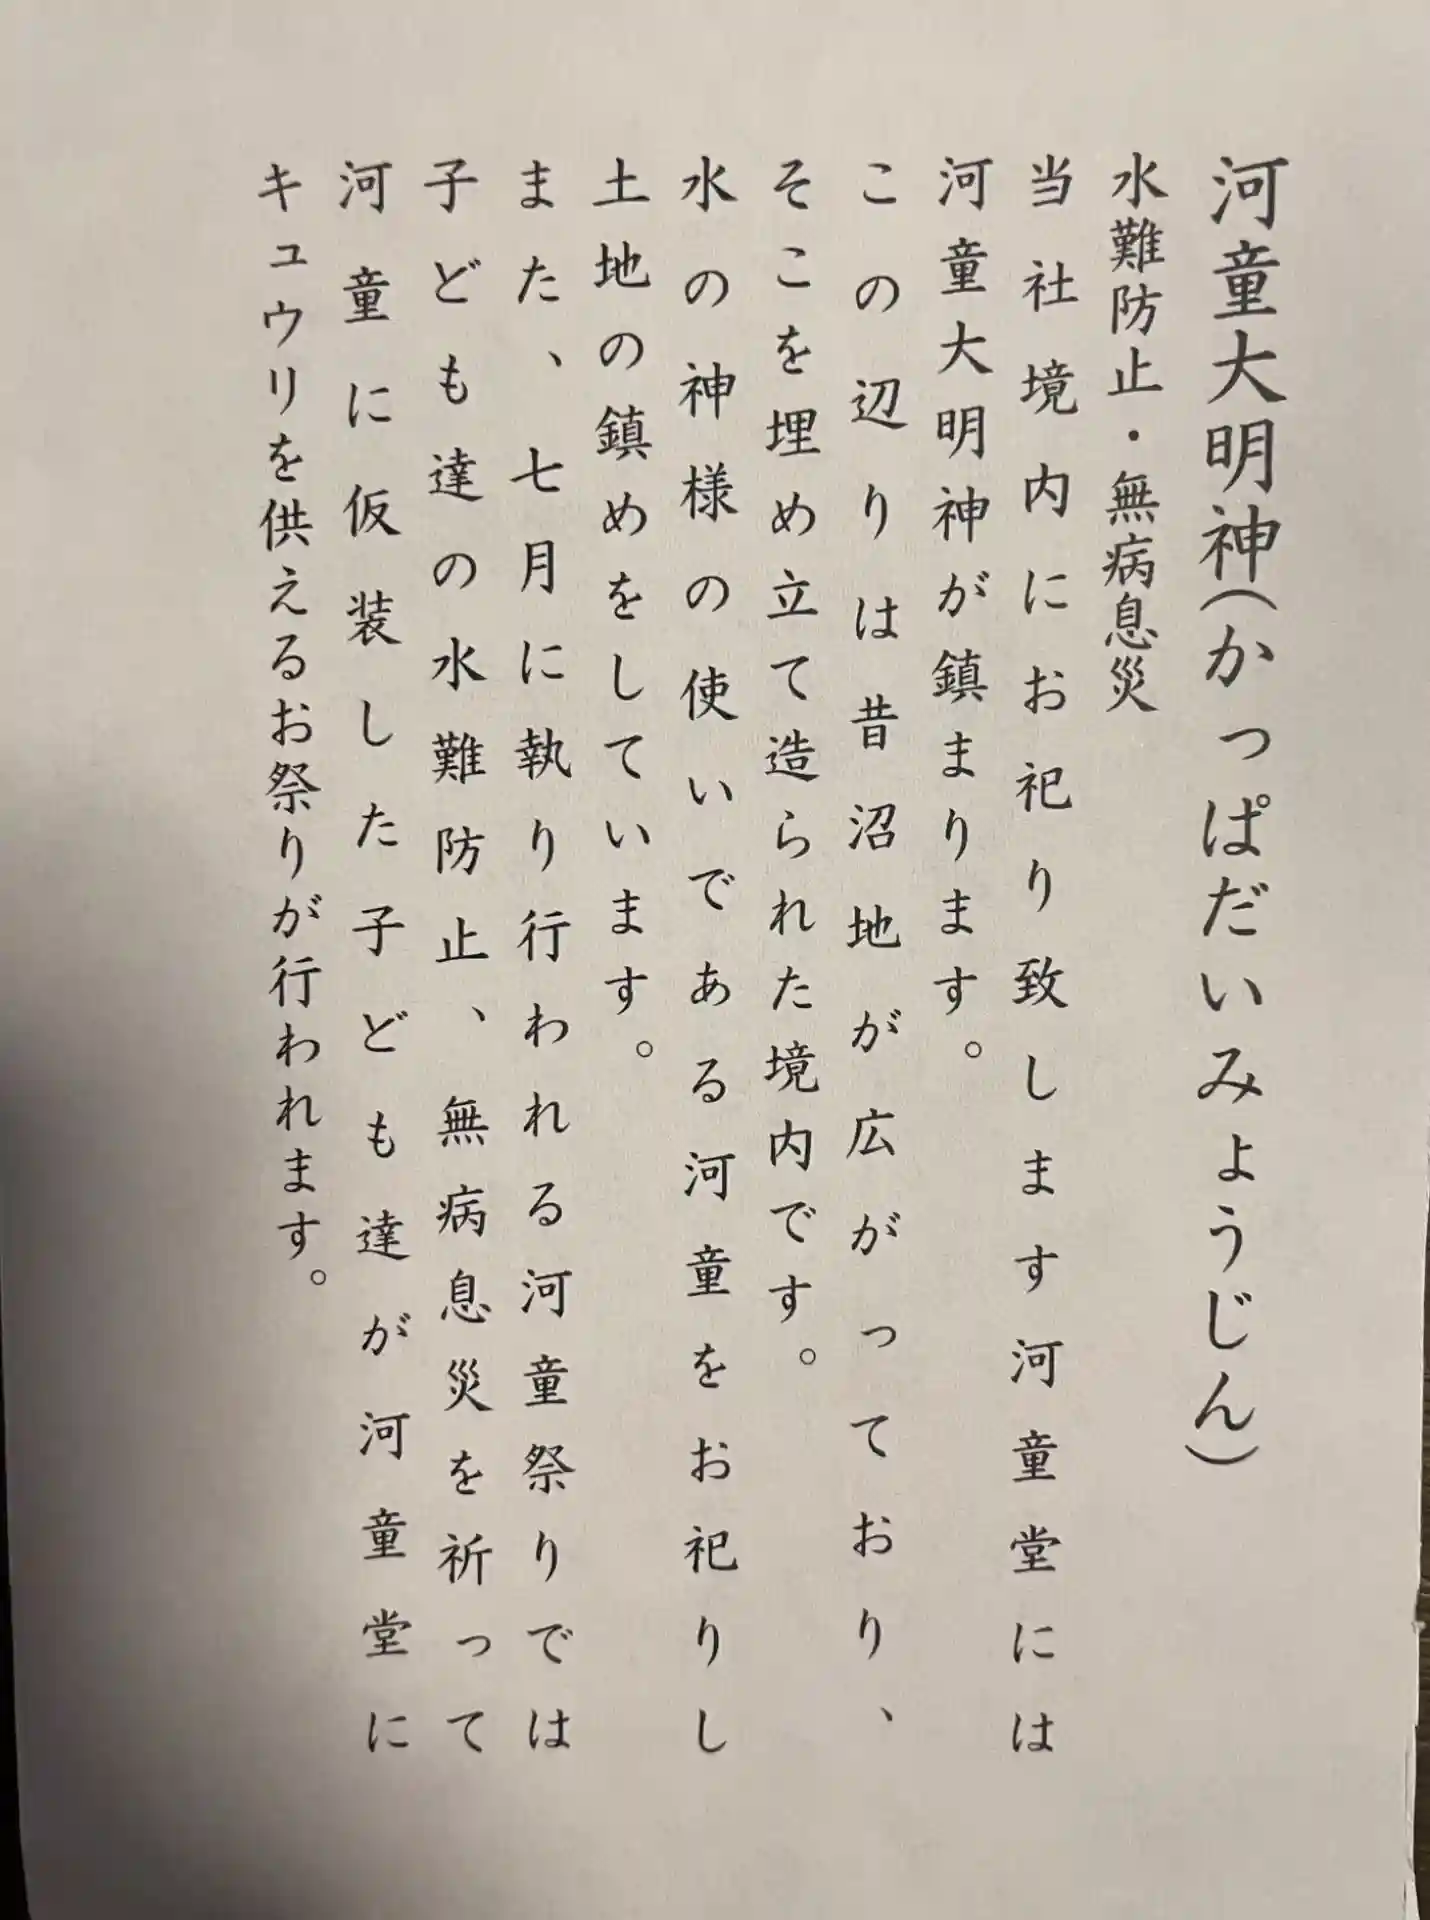 河童大明神(かっぱだいみょうじん)
水難防止・無病息災
当社境内にお祀り致します河童堂には
河童大明神が鎮まります。
この辺りは昔沼地が広がっており、
そこを埋め立て造られた境内です。
水の神様の使いである河童をお祀りし
土地の鎮めをしています。
また、七月に執り行われる河童祭りでは
子ども達の水難防止、無病息災を祈って
河童に仮装した子ども達が河童堂に
キュウリを供えるお祭りが行われます。